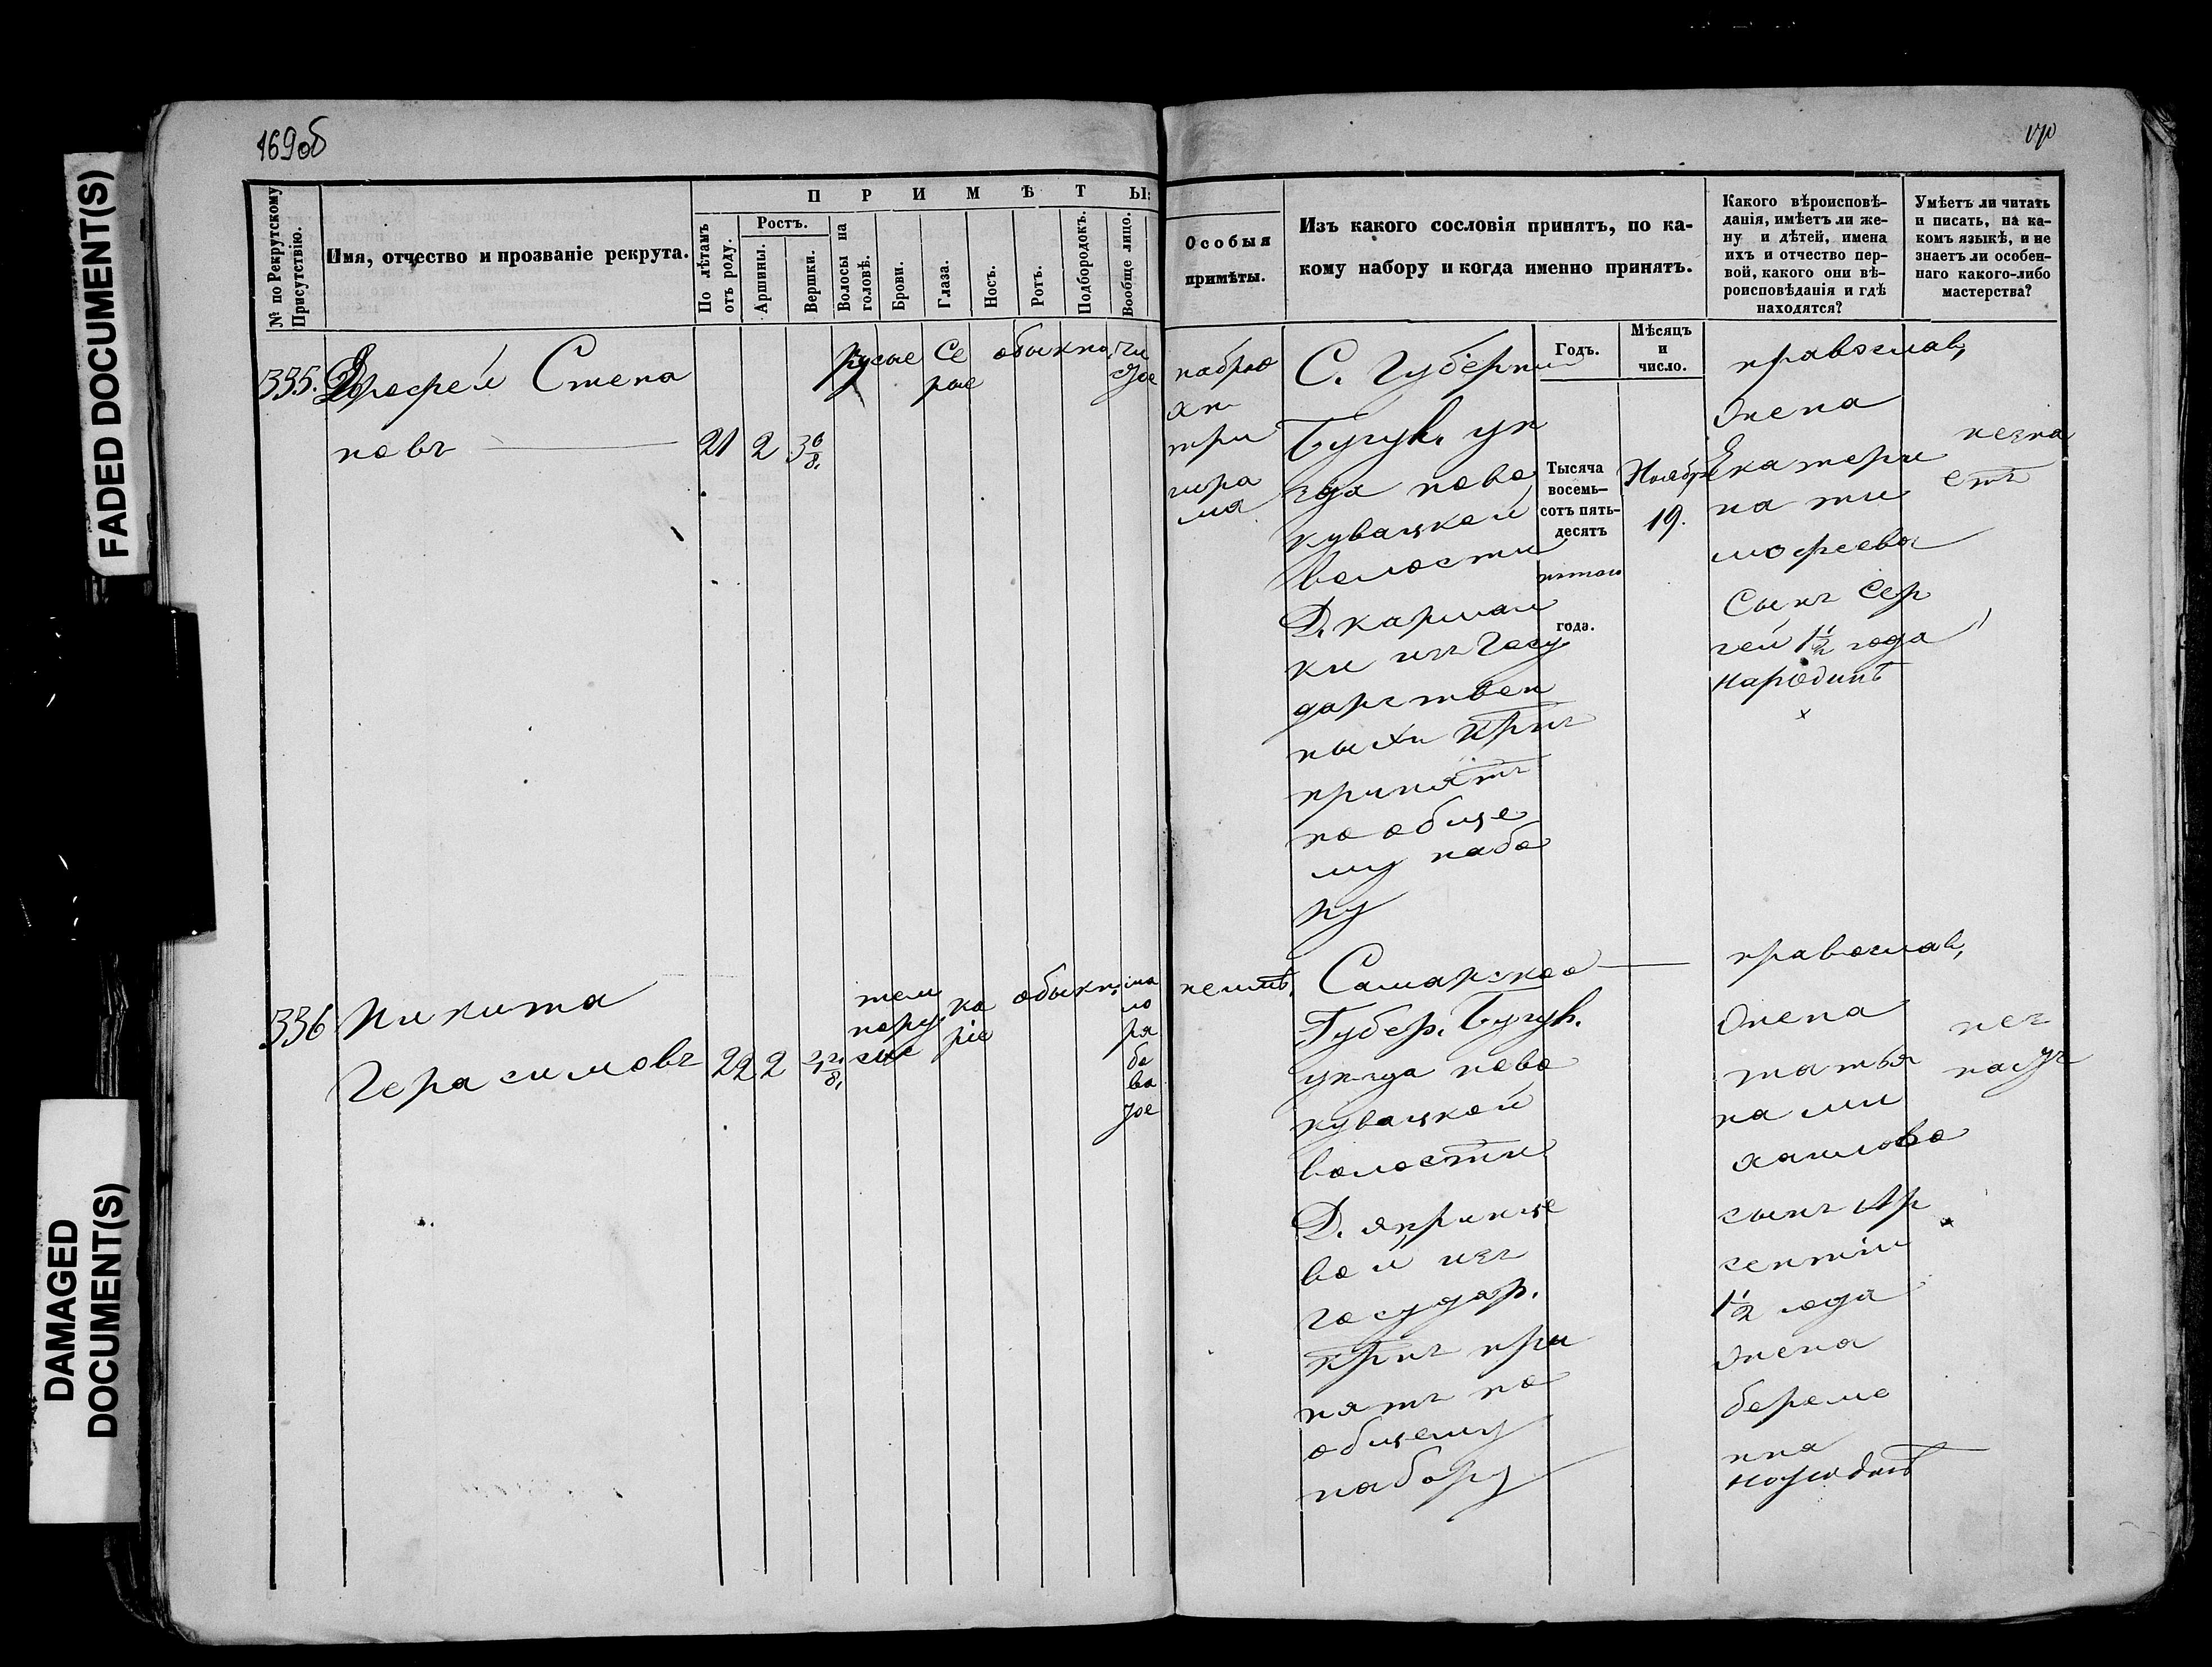 FADED DOCUMENT(S)
DAMAGED
DOCUMENT(S)
169об
№ по Рекрутскому
Присутствію.
Имя, отчество и прозваніе рекрута.
ПРИМѢТЫ:
По лѣтамъ
отъ роду.
Ростъ.
Аршины.
Вершки.
Волосы на
головѣ.
Брови.
Глаза.
Носъ.
Ротъ.
Подбородокъ.
Вообще лицо.
Особыя
примѣты.
Изъ какого сословія принятъ, по ка-
кому набору и когда именно принятъ.
Какого вѣроисповѣ-
данія, имѣетъ ли же-
ну и дѣтей, имена
ихъ и отчество пер-
вой, какого они вѣ-
роисповѣданія и гдѣ
находятся?
Умѣетъ ли читать
и писать, на ка-
комъ языкѣ, и не
знаетъ ли особен-
наго какого-либо
мастерства?
Годъ.
Мѣсяцъ
и
число.
335.
Дорофей Степа
новъ
21 2 3 6/8.
русые
Се
рые
обыкно.
чи
стое
на брю
хѣ
три
шра
ма
С. Губерніи
Бугул. уѣ
зда ново
кувацкой
волости
Д. Кармал
ки изъ Госу
дарствен
ныхъ крнъ
принятъ
по обще
му набо
ру
Тысяча
восемь-
сотъ пять-
десятъ
пятаго
года.
Ноября
19.
православ,
Жена
Екатери
на Ти
мофеева
Сынъ Сер
гей 1½ года
народинѣ
незна
етъ
336
Никита
Герасимовъ
22 2 4 2/8.
тем
нору
сые
ка
ріе
обыкн.
ма
ло
ря
бо
ва
тое
неимѣ.
Самарской
Губер. Бугул.
уѣзда ново
кувацкой
волости
Д. якринце
вой изъ
государ.
крнъ при
нятъ по
общему
набору
православ,
Жена
татья
на ми
хаилова
сынъ Ар
сентіи
1½ года
Жена
береме
нна